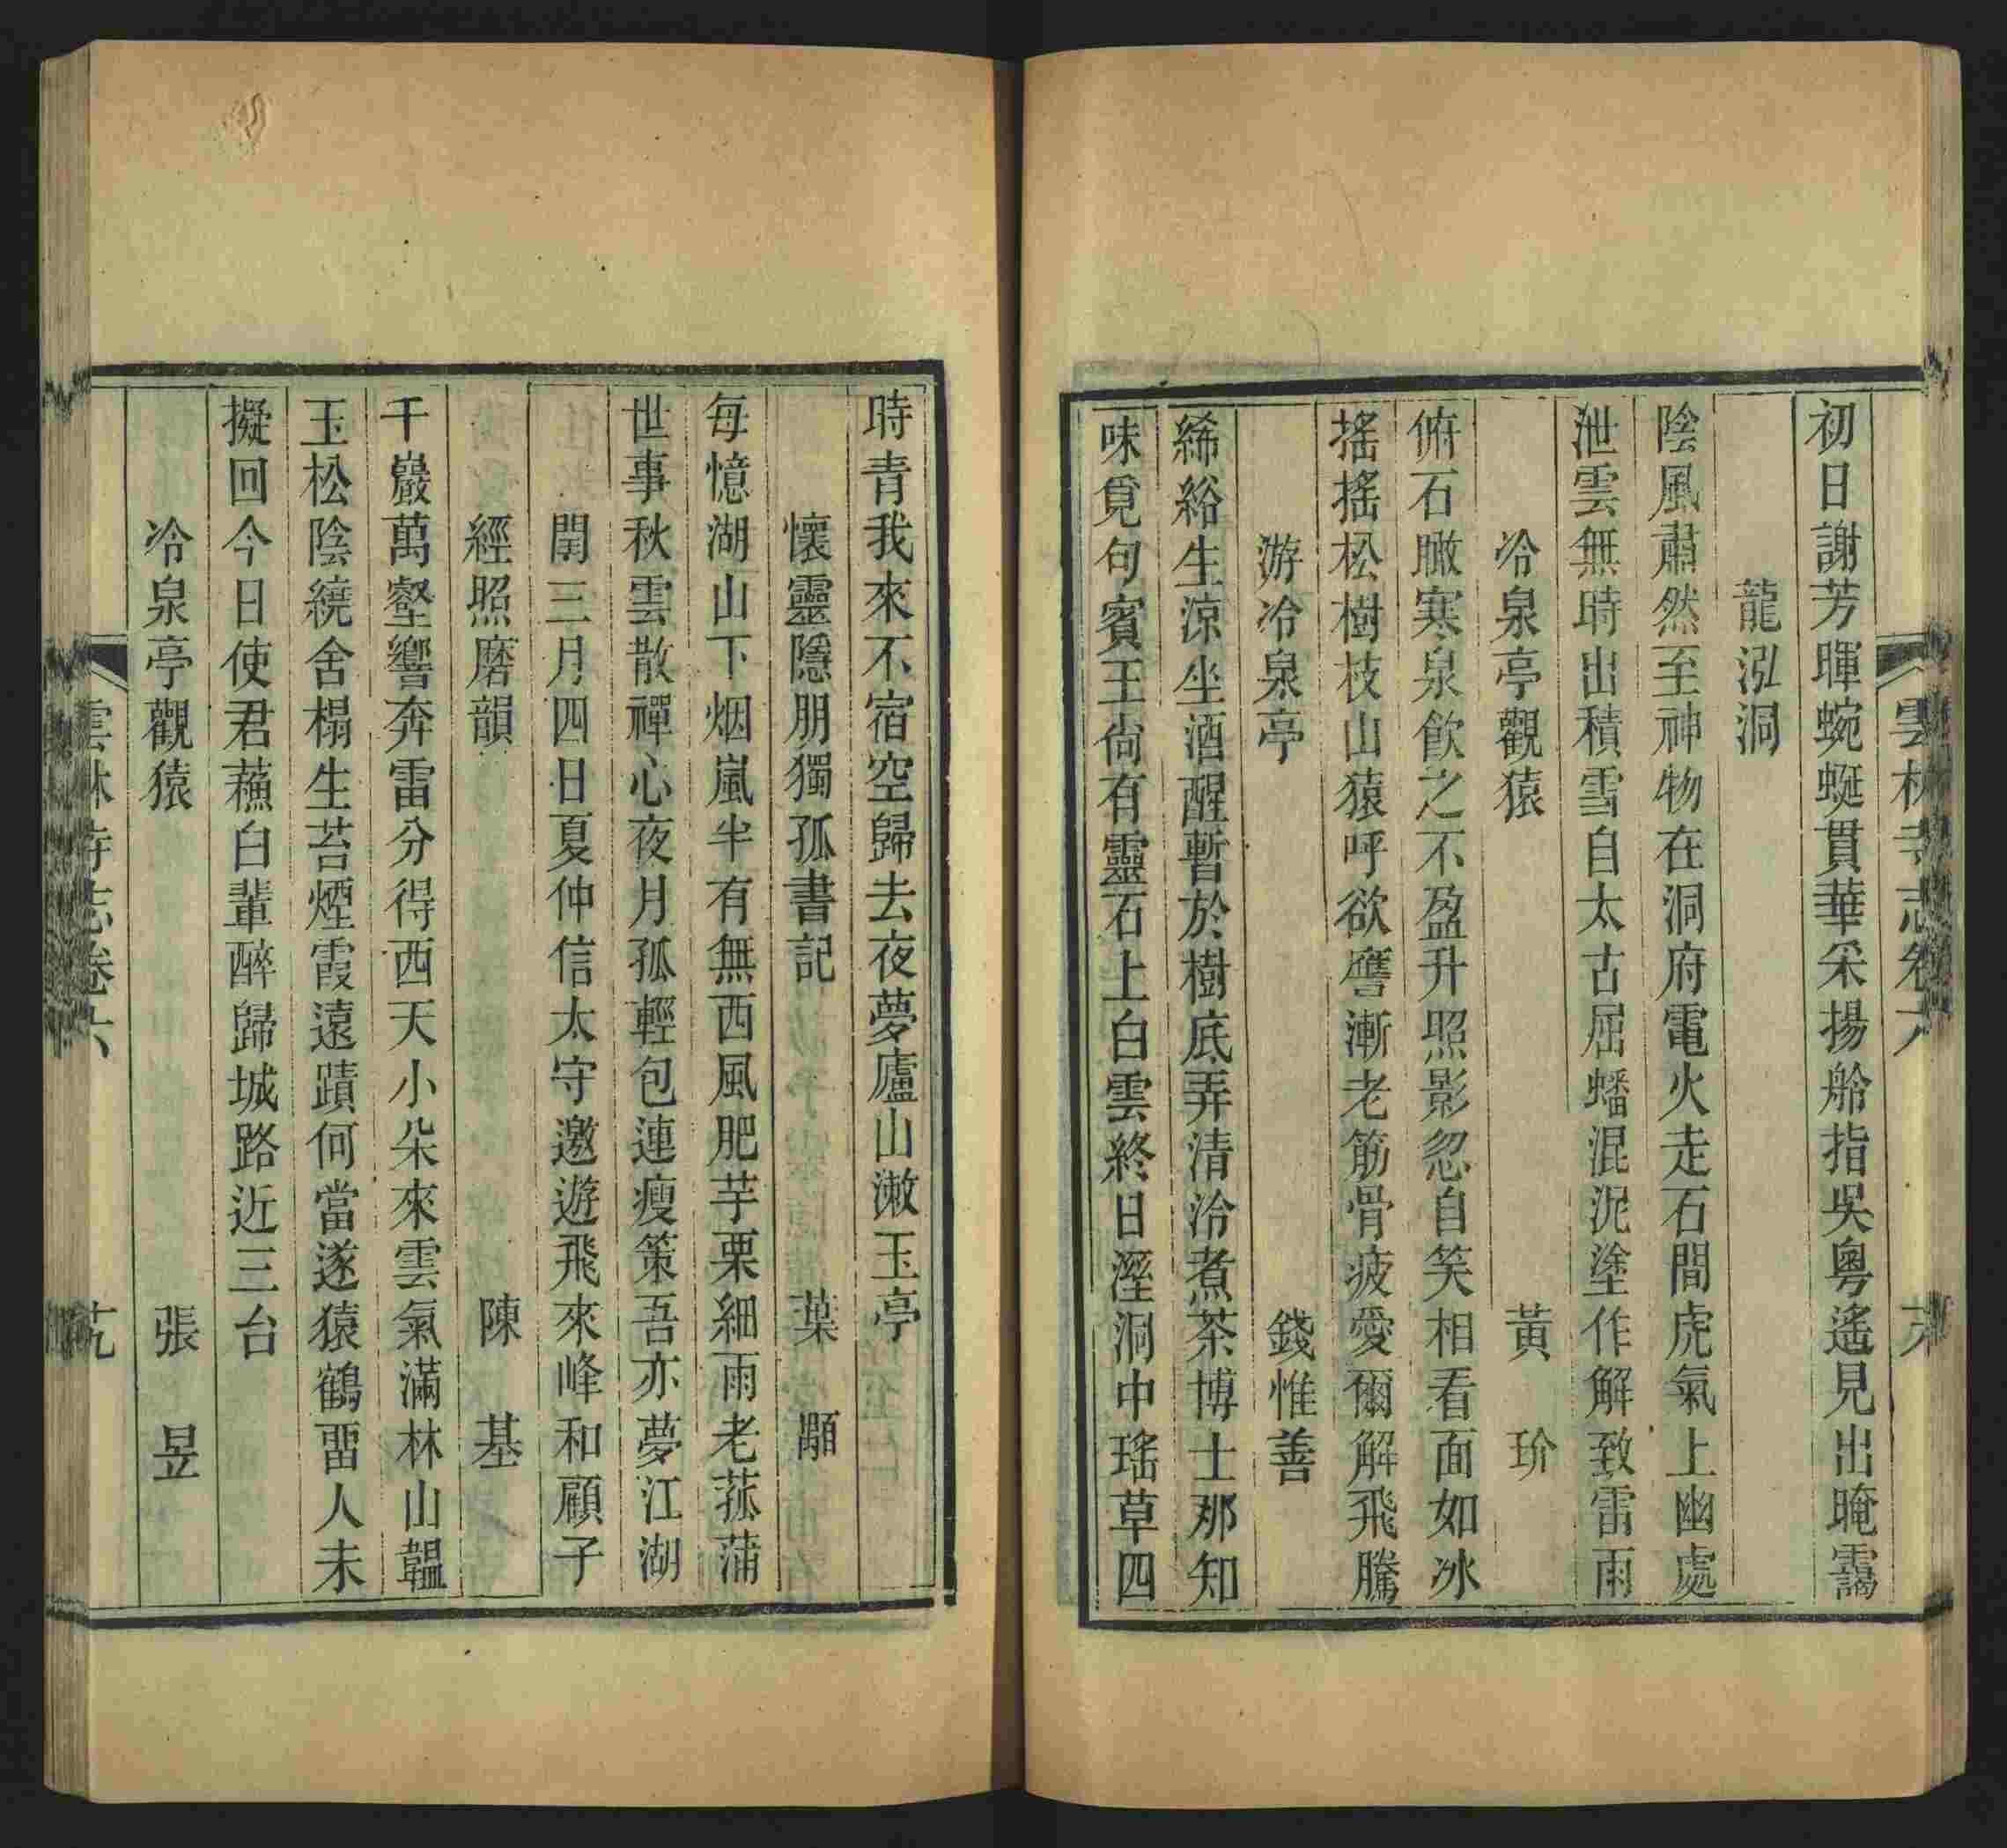 雲林寺志卷六
初日謝芳暉蜿蜒貫華采揚舲指吳粵遙見出晻靄
龍泓洞
陰風肅然至神物在洞府電火走石間虎氣上幽處
泄雲無時出積雪自太古屈蟠混泥塗作解致雷雨
冷泉亭觀猿 黃玠
俯石瞰寒泉飲之不盈升照影忽自笑相看面如冰
搖搖松樹枝山猿呼欲譍漸老筋骨疲愛爾解飛騰
游冷泉亭 錢惟善
絺綌生涼坐酒醒暫於樹底弄清泠煮茶博士那知
味覓句賓王尙有靈石上白雲終日溼洞中瑤草四
時青我來不宿空歸去夜夢廬山漱玉亭
懷靈隱朋獨孤書記 葉顒
每憶湖山下烟嵐半有無西風肥芋栗細雨老菰蒲
世事秋雲散禪心夜月孤輕包連瘦策吾亦夢江湖
閏三月四日夏仲信太守邀遊飛來峰和顧子
經照磨韻 陳基
千巖萬壑響奔雷分得西天小朵來雲氣滿林山韞
玉松陰繞舍榻生苔煙霞遠蹟何當遂猿鶴畱人未
擬回今日使君蘸白輩醉歸城路近三台
冷泉亭觀猿 張昱
雲林寺志卷六